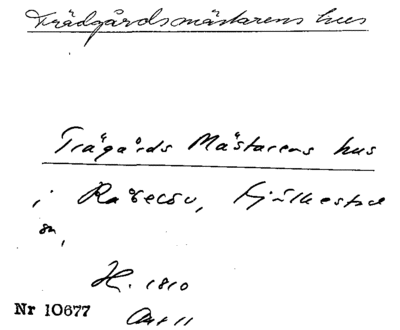 Trädgårdsmästarens hus
Trägårds Mästarens hus
i Rabelöv, Fjälkestad
sn,
H. 1810
Nr 10677